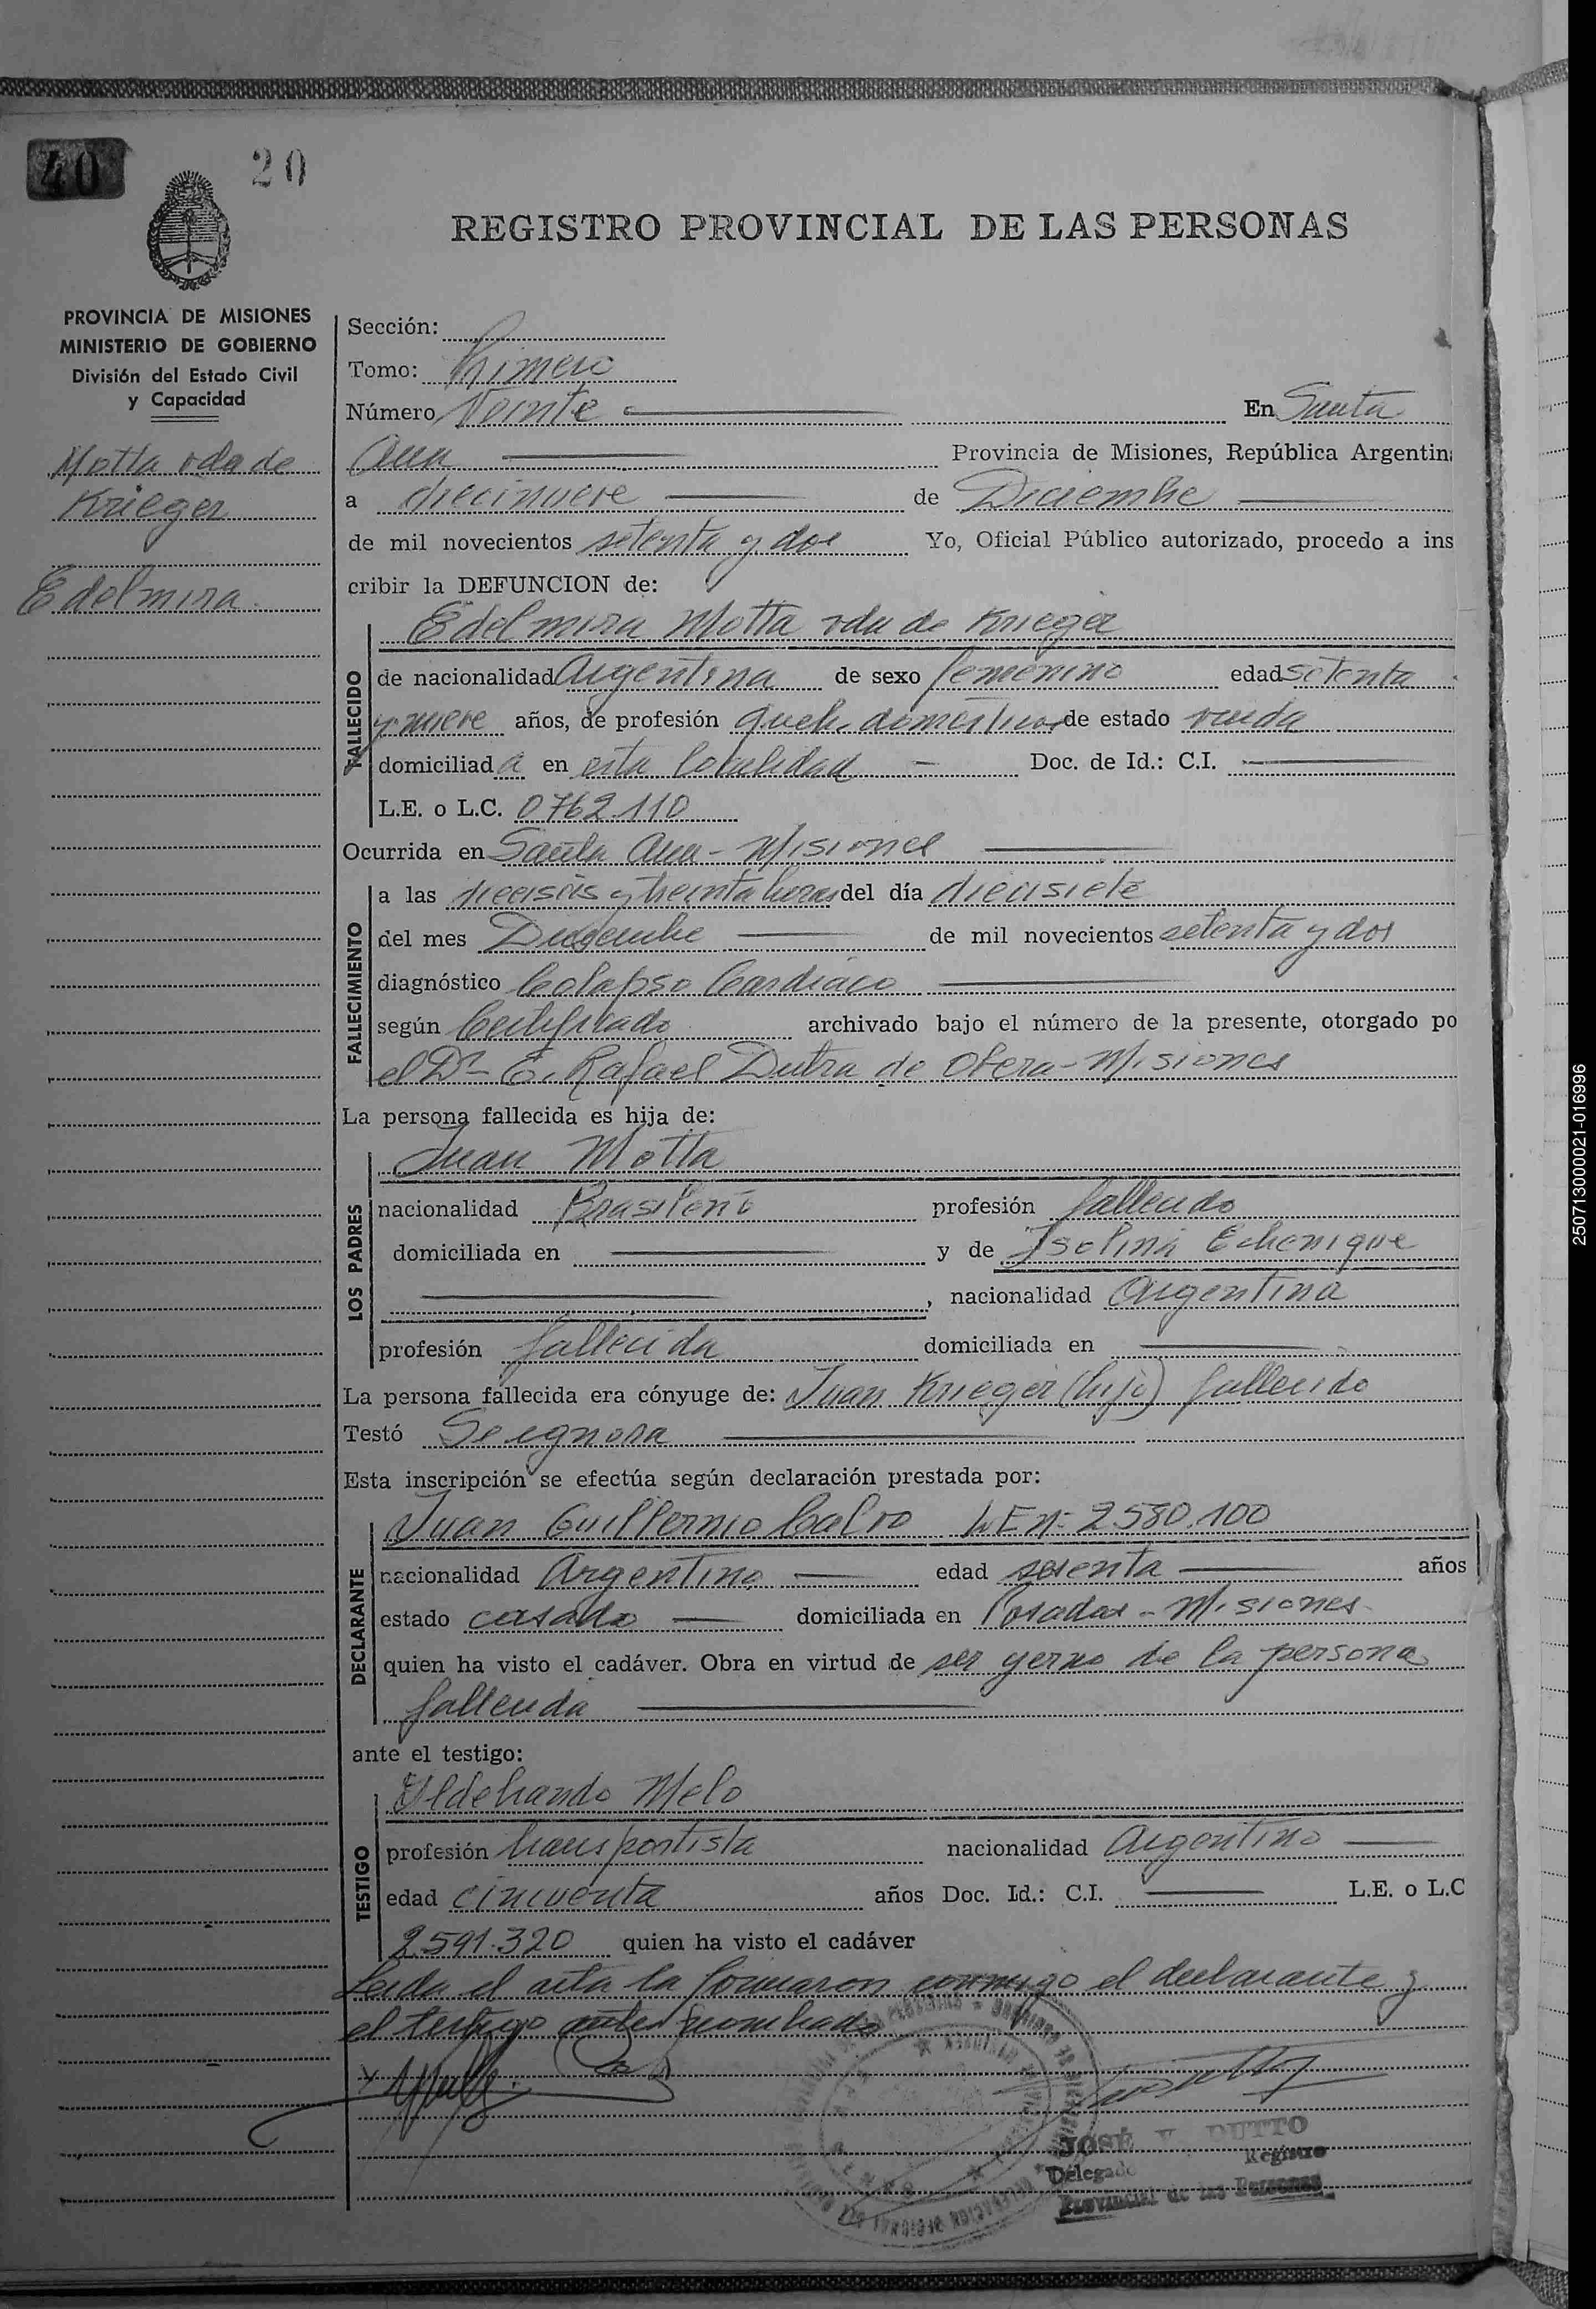 40
20
REGISTRO PROVINCIAL DE LAS PERSONAS
PROVINCIA DE MISIONES
MINISTERIO DE GOBIERNO
División del Estado Civil
y Capacidad
Motta vda de
Krieger
Edelmira
Sección:
Tomo: Primero
Número Veinte En Santa
Ana Provincia de Misiones, República Argentin
a diecinueve de Diciembre
de mil novecientos setenta y dos Yo, Oficial Público autorizado, procedo a ins
cribir la DEFUNCION de:
FALLECIDO
Edelmira Motta vda de Krieger
de nacionalidad Argentina de sexo femenino edad setenta
y nueve años, de profesión queh. domésticos de estado viuda
domiciliad a en esta localidad Doc. de Id.: C.I.
L.E. o L.C. 0762.110
Ocurrida en Santa Ana - Misiones
FALLECIMIENTO
a las dieciseis y treinta horas del día diecisiete
del mes Diciembre de mil novecientos setenta y dos
diagnóstico Colapso Cardiaco
según Certificado archivado bajo el número de la presente, otorgado po
el Dr E. Rafael Dutra de Obera - Misiones
La persona fallecida es hija de:
LOS PADRES
Juan Motta
nacionalidad Brasileño profesión fallecido
domiciliada en y de Isolina Echenique
, nacionalidad Argentina
profesión fallecida domiciliada en
La persona fallecida era cónyuge de: Juan Krieger (hijo) fallecido
Testó Se ignora
Esta inscripción se efectúa según declaración prestada por:
DECLARANTE
Juan Guillermo Calvo L.E. Nº 2580.100
nacionalidad Argentino edad años
estado casado domiciliada en Posadas - Misiones
quien ha visto el cadáver. Obra en virtud de ser yerno de la persona
fallecida
ante el testigo:
TESTIGO
Ildebrando Melo
profesión transportista nacionalidad Argentino
edad cincuenta años Doc. Id.: C.I. L.E. o L.C
2591.320 quien ha visto el cadáver
Leida el acta la firmaron conmigo el declarante y
el testigo antes nombrado
JOSÉ V. DUTTO
Delegado Registro
Provincial de las Personas
250713000021-016996